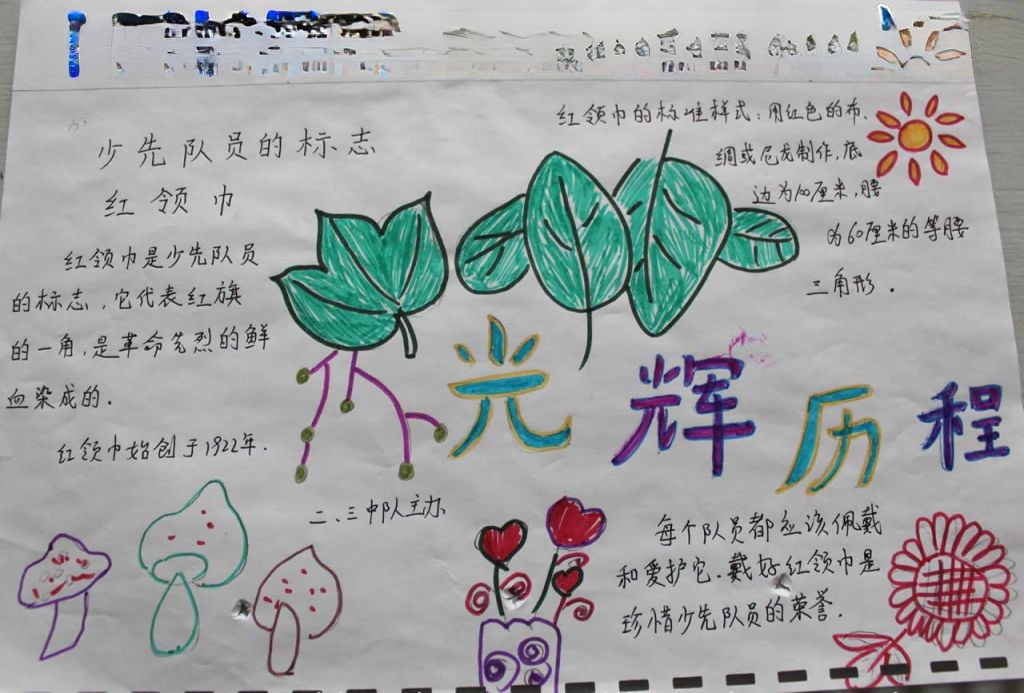 少先队员的标志
红领巾
红领巾是少先队员
的标志，它代表红旗
的一角，是革命先烈的鲜
血染成的．
红领巾始创于1922年．
红领巾的标准样式：用红色的布、
绸或尼龙制作，底
边为100厘米，腰
为60厘米的等腰
三角形．
光辉历程
二、三中队主办
每个队员都应该佩戴
和爱护它．戴好红领巾是
珍惜少先队员的荣誉．